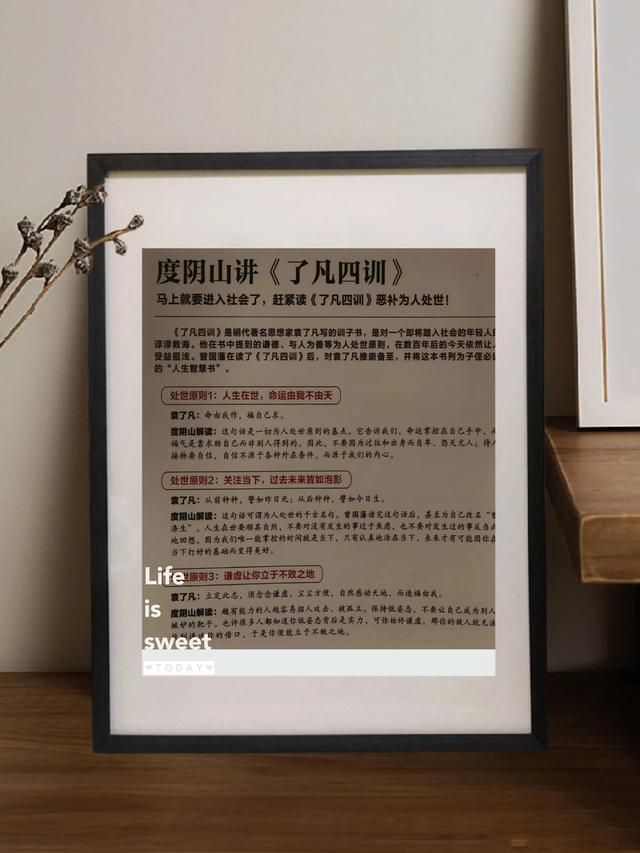 度阴山讲《了凡四训》
马上就要进入社会了，赶紧读《了凡四训》恶补为人处世！
《了凡四训》是明代著名思想家袁了凡写的训子书，是对一个即将踏入社会的年轻人的
谆谆教诲。他在书中提到的谦德、与人为善等为人处世原则，在数百年后的今天依然让人
受益匪浅。曾国藩在读了《了凡四训》后，对袁了凡推崇备至，并将这本书列为子侄必读
的“人生智慧书”。
处世原则1：人生在世，命运由我不由天
袁了凡：命由我作，福自己求。
度阴山解读：这句话是一切为人处世原则的基点。它告诉我们，命运掌控在自己手中，
福气是靠求助自己而非别人得到的。因此，不要因为过往和出身而自卑、怨天尤人；待人
接物要自信，自信不源于各种外在条件，而源于我们的内心。
处世原则2：关注当下，过去未来皆如泡影
袁了凡：从前种种，譬如昨日死；从后种种，譬如今日生。
度阴山解读：这句话可谓为人处世的千古名句。曾国藩读完这句话后，甚至为自己改名“
涤生”。人生在世要顺其自然，不要对没有发生的事过于焦虑，也不要对发生过的事反刍式
地回想。因为我们唯一能掌控的时间就是当下，只有认真地活在当下，未来才有可能因你在
当下打好的基础而变得美好。
世原则3：谦虚让你立于不败之地
袁了凡：立定此志，须念念谦虚，尘尘方便，自然感动天地，而造福由我。
度阴山解读：越有能力的人越容易招人攻击、被孤立。保持低姿态，不要让自己成为别人
嫉妒的靶子。也许很多人都知道你低姿态背后是实力，可你始终谦虚，那你的敌人就无法
你的借口，于是你便能立于不败之地。
Life
is
sweet
♥TODAY♥